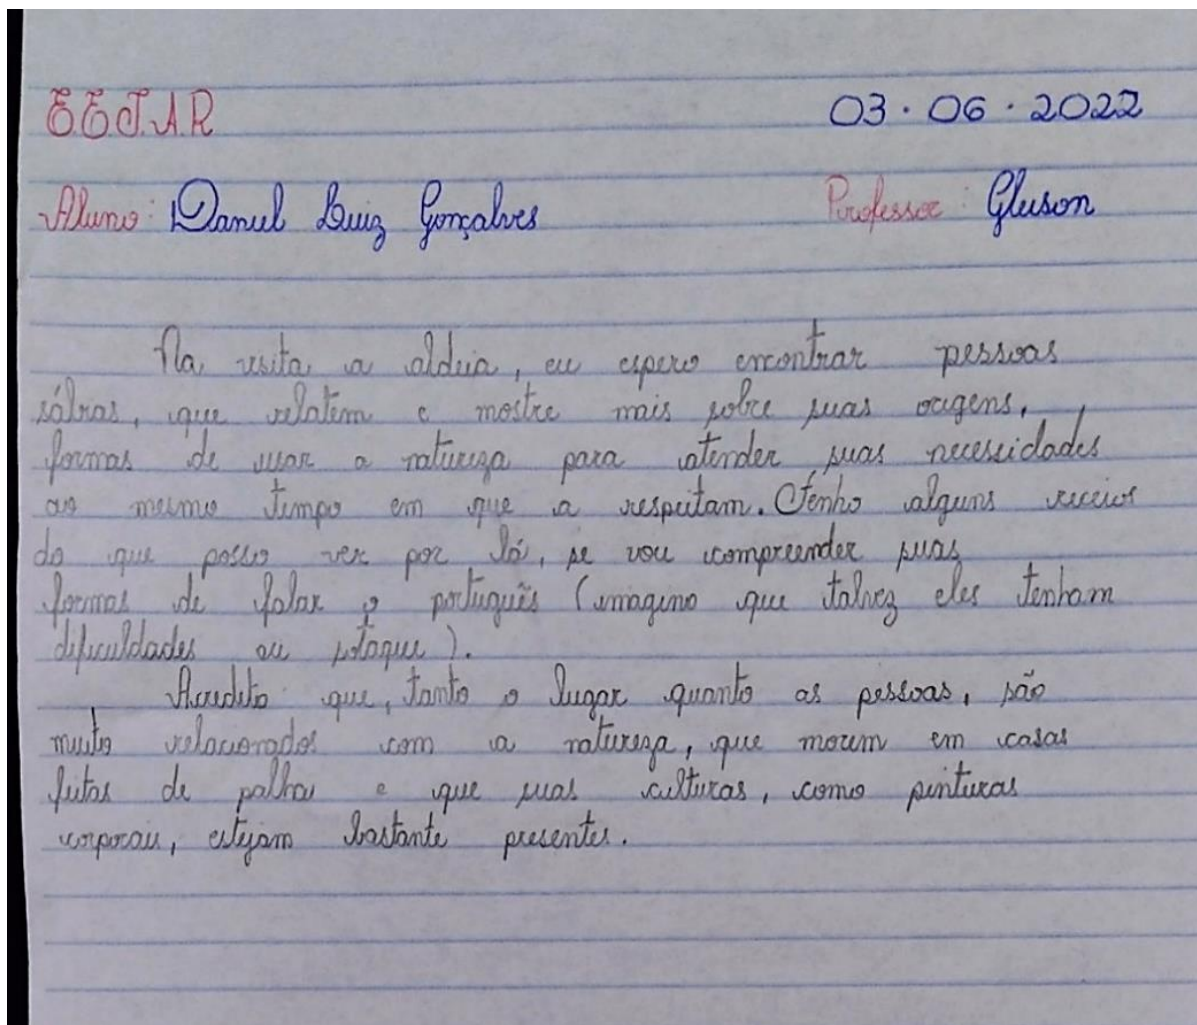 EEJAR 03 · 06 · 2022
Aluno: Daniel Luiz Gonçalves Professor: Gleison
Na visita a aldeia, eu espero encontrar pessoas
sábias, que relatem e mostre mais sobre suas origens,
formas de usar a natureza para atender suas necessidades
ao mesmo tempo em que a respeitam. Tenho alguns receios
do que posso ver por lá, se vou compreender suas
formas de falar o português (imagino que talvez eles tenham
dificuldades ou sotaque).
Acredito que, tanto o lugar quanto as pessoas, são
muito relacionados com a natureza, que morem em casas
feitas de palha e que suas culturas, como pinturas
corporais, estejam bastante presentes.